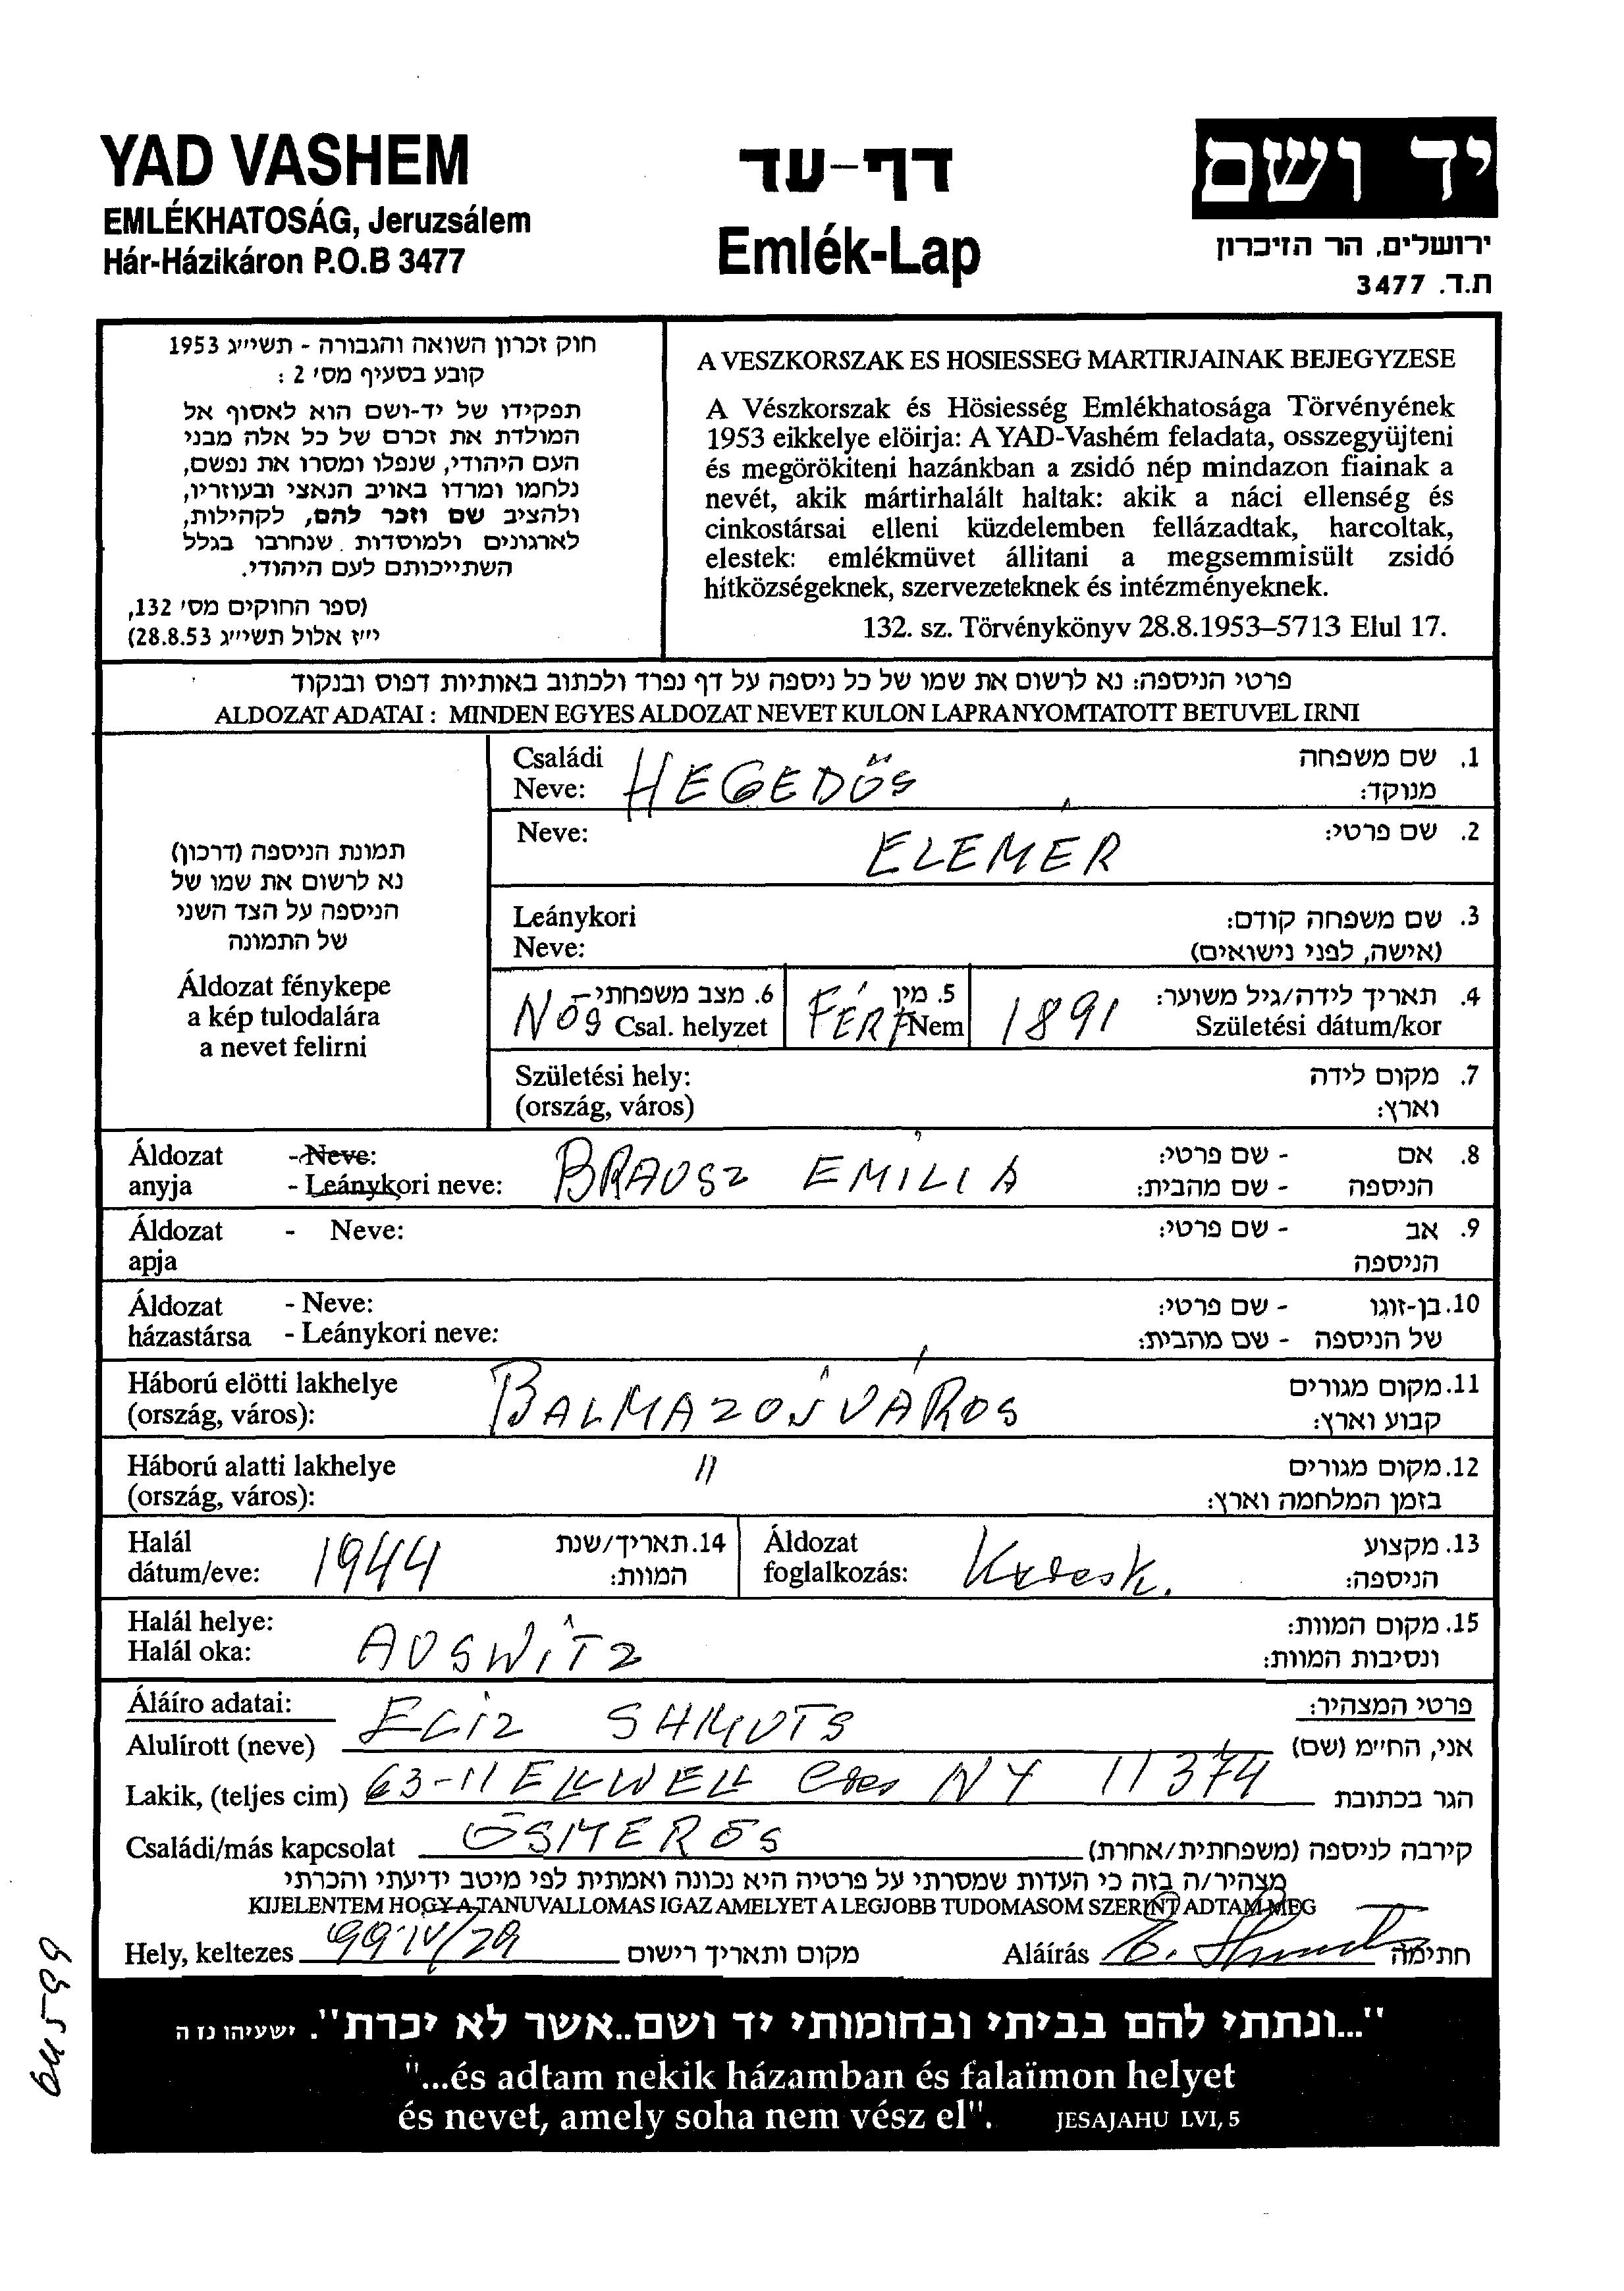 YAD VASHEM
EMLÉKHATOSÁG, Jeruzsálem
Hár-Házikáron P.O.B 3477
דף-עד
Emlék-Lap
יד ושם
ירושלים, הר הזיכרון
ת.ד. 3477
חוק זכרון השואה והגבורה - תשי״ג 1953
קובע בסעיף מס' 2 :
תפקידו של יד-ושם הוא לאסוף אל
המולדת את זכרם של כל אלה מבני
העם היהודי, שנפלו ומסרו את נפשם,
נלחמו ומרדו באויב הנאצי ובעוזריו,
ולהציב שם וזכר להם, לקהילות,
לארגונים ולמוסדות שנחרבו בגלל
השתייכותם לעם היהודי.
(ספר החוקים מס' 132,
י״ז אלול תשי״ג 28.8.53)
A VESZKORSZAK ES HOSIESSEG MARTIRJAINAK BEJEGYZESE
A Vészkorszak és Hösiesség Emlékhatosága Törvényének
1953 eikkelye elöirja: A YAD-Vashém feladata, osszegyüjteni
és megörökiteni hazánkban a zsidó nép mindazon fiainak a
nevét, akik mártirhalált haltak: akik a náci ellenség és
cinkostársai elleni küzdelemben fellázadtak, harcoltak,
elestek: emlékmüvet állitani a megsemmisült zsidó
hitközségeknek, szervezeteknek és intézményeknek.
132. sz. Törvénykönyv 28.8.1953–5713 Elul 17.
פרטי הניספה: נא לרשום את שמו של כל ניספה על דף נפרד ולכתוב באותיות דפוס ובנקוד
ALDOZAT ADATAI : MINDEN EGYES ALDOZAT NEVET KULON LAPRA NYOMTATOTT BETUVEL IRNI
תמונת הניספה (דרכון)
נא לרשום את שמו של
הניספה על הצד השני
של התמונה
Áldozat fénykepe
a kép tulodalára
a nevet felirni
Családi HEGEDŰS 1. שם משפחה
Neve: מנוקד:
Neve: ELEMÉR 2. שם פרטי:
Leánykori 3. שם משפחה קודם:
Neve: (אישה, לפני נישואים)
NŐS 6. מצב משפחתי FÉRFI 5. מין 1891 4. תאריך לידה/גיל משוער:
Csal. helyzet Nem Születési dátum/kor
Születési hely: 7. מקום לידה
(ország, város) וארץ:
Áldozat - Neve: BRAUSZ EMILIA 8. אם - שם פרטי:
anyja - Leánykori neve: הניספה - שם מהבית:
Áldozat - Neve: 9. אב - שם פרטי:
apja הניספה
Áldozat - Neve: 10. בן-זוגו - שם פרטי:
házastársa - Leánykori neve: של הניספה - שם מהבית:
Háború elötti lakhelye BALMAZÚJVÁROS 11. מקום מגורים
(ország, város): קבוע וארץ:
Háború alatti lakhelye 〃 12. מקום מגורים
(ország, város): בזמן המלחמה וארץ:
Halál 1944 14. תאריך/שנת Áldozat Keresk. 13. מקצוע
dátum/eve: המוות: foglalkozás: הניספה:
Halál helye: AUSWITZ 15. מקום המוות:
Halál oka: ונסיבות המוות:
Áláíro adatai: פרטי המצהיר:
Alulírott (neve) ELIZ SHMUTS אני, החי״מ (שם)
Lakik, (teljes cim) 63-11 ELLWELL Cres NY 11374 הגר בכתובת
Családi/más kapcsolat ÖSMERŐS קירבה לניספה (משפחתית/אחרת)
מצהיר/ה בזה כי העדות שמסרתי על פרטיה היא נכונה ואמתית לפי מיטב ידיעתי והכרתי
KIJELENTEM HOGY A TANUVALLOMAS IGAZ AMELYET A LEGJOBB TUDOMASOM SZERINT ADTAM MEG
Hely, keltezes 99 IV/29 מקום ותאריך רישום Aláírás חתימה
"...ונתתי להם בביתי ובחומותי יד ושם..אשר לא יכרת". ישעיהו נז ה
"...és adtam nekik házamban és falaïmon helyet
és nevet, amely soha nem vész el". JESAJAHU LVI, 5